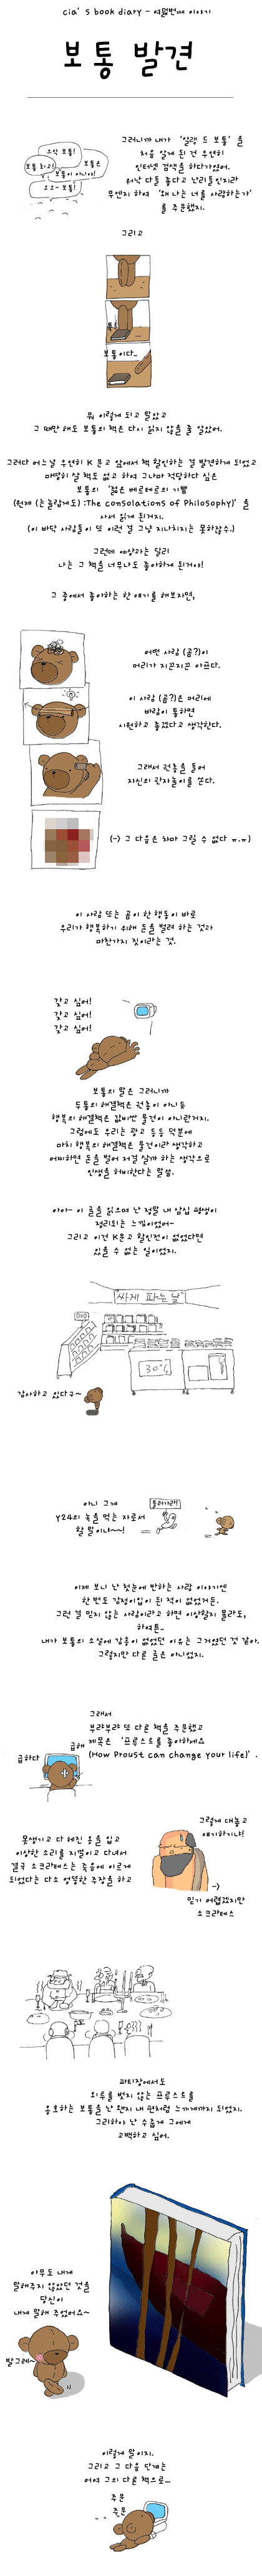 cia's book diary - 여덟번째 이야기
보통 발견
오악 보통!
보통 최고!
보통은
보통이 아니야!
오오~ 보통!
그러니까 내가 '알랭 드 보통'을
처음 알게 된 건 우연히
인터넷 검색을 하다가였어.
워낙 다들 좋다고 난리들인지라
무언지 하여 '왜 나는 너를 사랑하는가'
를 주문했지.
그리고
툭!
보통이다..
뭐 이렇게 되고 말았고
그 때만 해도 보통의 책은 다시 읽지 않을 줄 알았어.
그러다 어느날 우연히 K문고 앞에서 책 할인하는 걸 발견하게 되었고
마땅히 살 책도 없고 하여 그나마 적당하다 싶은
보통의 '젊은 베르테르의 기쁨
(원제 (는 놀랍게도) :The consolations of Philosophy)'을
사서 읽게 된거지.
(이 바닥 사람들이 또 이런 걸 그냥 지나치지는 못하잖수.)
그런데 예상과는 달리
나는 그 책을 너무나도 좋아하게 된거야!
그 중에서 좋아하는 한 얘기를 해보자면,
어떤 사람 (곰?)이
머리가 지끈지끈 아프다.
이 사람 (곰?)은 머리에
바람이 통하면
시원하고 좋겠다고 생각한다.
그래서 권총을 들어
자신의 관자놀이를 쏜다.
(-> 그 다음은 차마 그릴 수 없다 ㅠ.ㅠ)
이 사람 또는 곰이 한 행동이 바로
우리가 행복하기 위해 돈을 벌려 하는 것과
마찬가지 짓이라는 것.
갖고 싶어!
갖고 싶어!
갖고 싶어!
보통의 말은 그러니까
두통의 해결책은 권총이 아니듯
행복의 해결책은 값비싼 물건이 아니란거지.
그럼에도 우리는 광고 등등 덕분에
마치 행복의 해결책은 물건이라 생각하고
어찌하면 돈을 벌어 저걸 살까 하는 생각으로
인생을 허비한다는 말씀.
아아- 이 글을 읽으며 난 정말 내 삼십 평생이
정리되는 느낌이었어-
그리고 이건 K문고 할인전이 없었다면
있을 수 없는 일이었지.
싸게 파는 날
DVD
30%
감사하고 있다구~
아니 그게
Y24의 녹을 먹는 자로서
할 말이냐~~!
물러가라!!
이제 보니 난 첫눈에 반하는 사랑 이야기엔
한 번도 감정이입이 된 적이 없었거든.
그런 걸 믿지 않는 사람이라고 하면 이상할지 몰라도,
하여튼..
내가 보통의 소설에 감흥이 없었던 이유는 그거였던 것 같아.
그렇지만 다른 글은 아니었지.
그래서
부랴부랴 또 다른 책을 주문했고
제목은 '프루스트를 좋아하세요
(How Proust can change Your life)'.
급하다
급해
못생기고 다 헤진 옷을 입고
이상한 소리를 지껄이고 다녀서
결국 소크라테스는 죽음에 이르게
되었다는 다소 엉뚱한 주장을 하고
그렇게 대놓고
얘기하기냐!
->
믿기 어렵겠지만
소크라테스
파티장에서도
외투를 벗지 않는 프루스트를
옹호하는 보통을 난 왠지 내 편처럼 느끼게까지 되었지.
그리하야 난 수줍게 그에게
고백하고 싶어.
아무도 내게
말해주지 않았던 것을
당신이
내게 말해 주었어요~
발그레~
이렇게 말이지.
그리고 그 다음 단계는
어여 그의 다른 책으로...
주문
주문